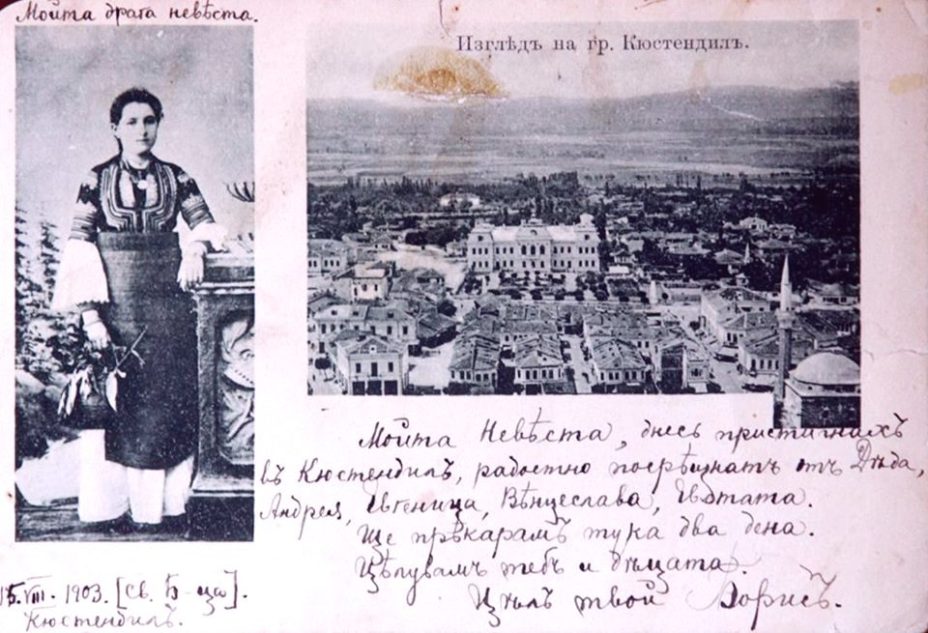 Мойта драга невѣста.
Изгледъ на гр. Кюстендилъ.
Мойта Невѣста, днесъ пристигнахъ
въ Кюстендилъ, радостно посрѣщнатъ отъ Дѣда,
Андрея, Евгеница, Вѣнцеслава,
Ще прѣкарамъ тука два дена.
Цѣлувамъ тебъ и дѣцата.
Цѣлъ твой Борисъ.
15.VIII. 1903. [Св. Б-ца].
Кюстендилъ.